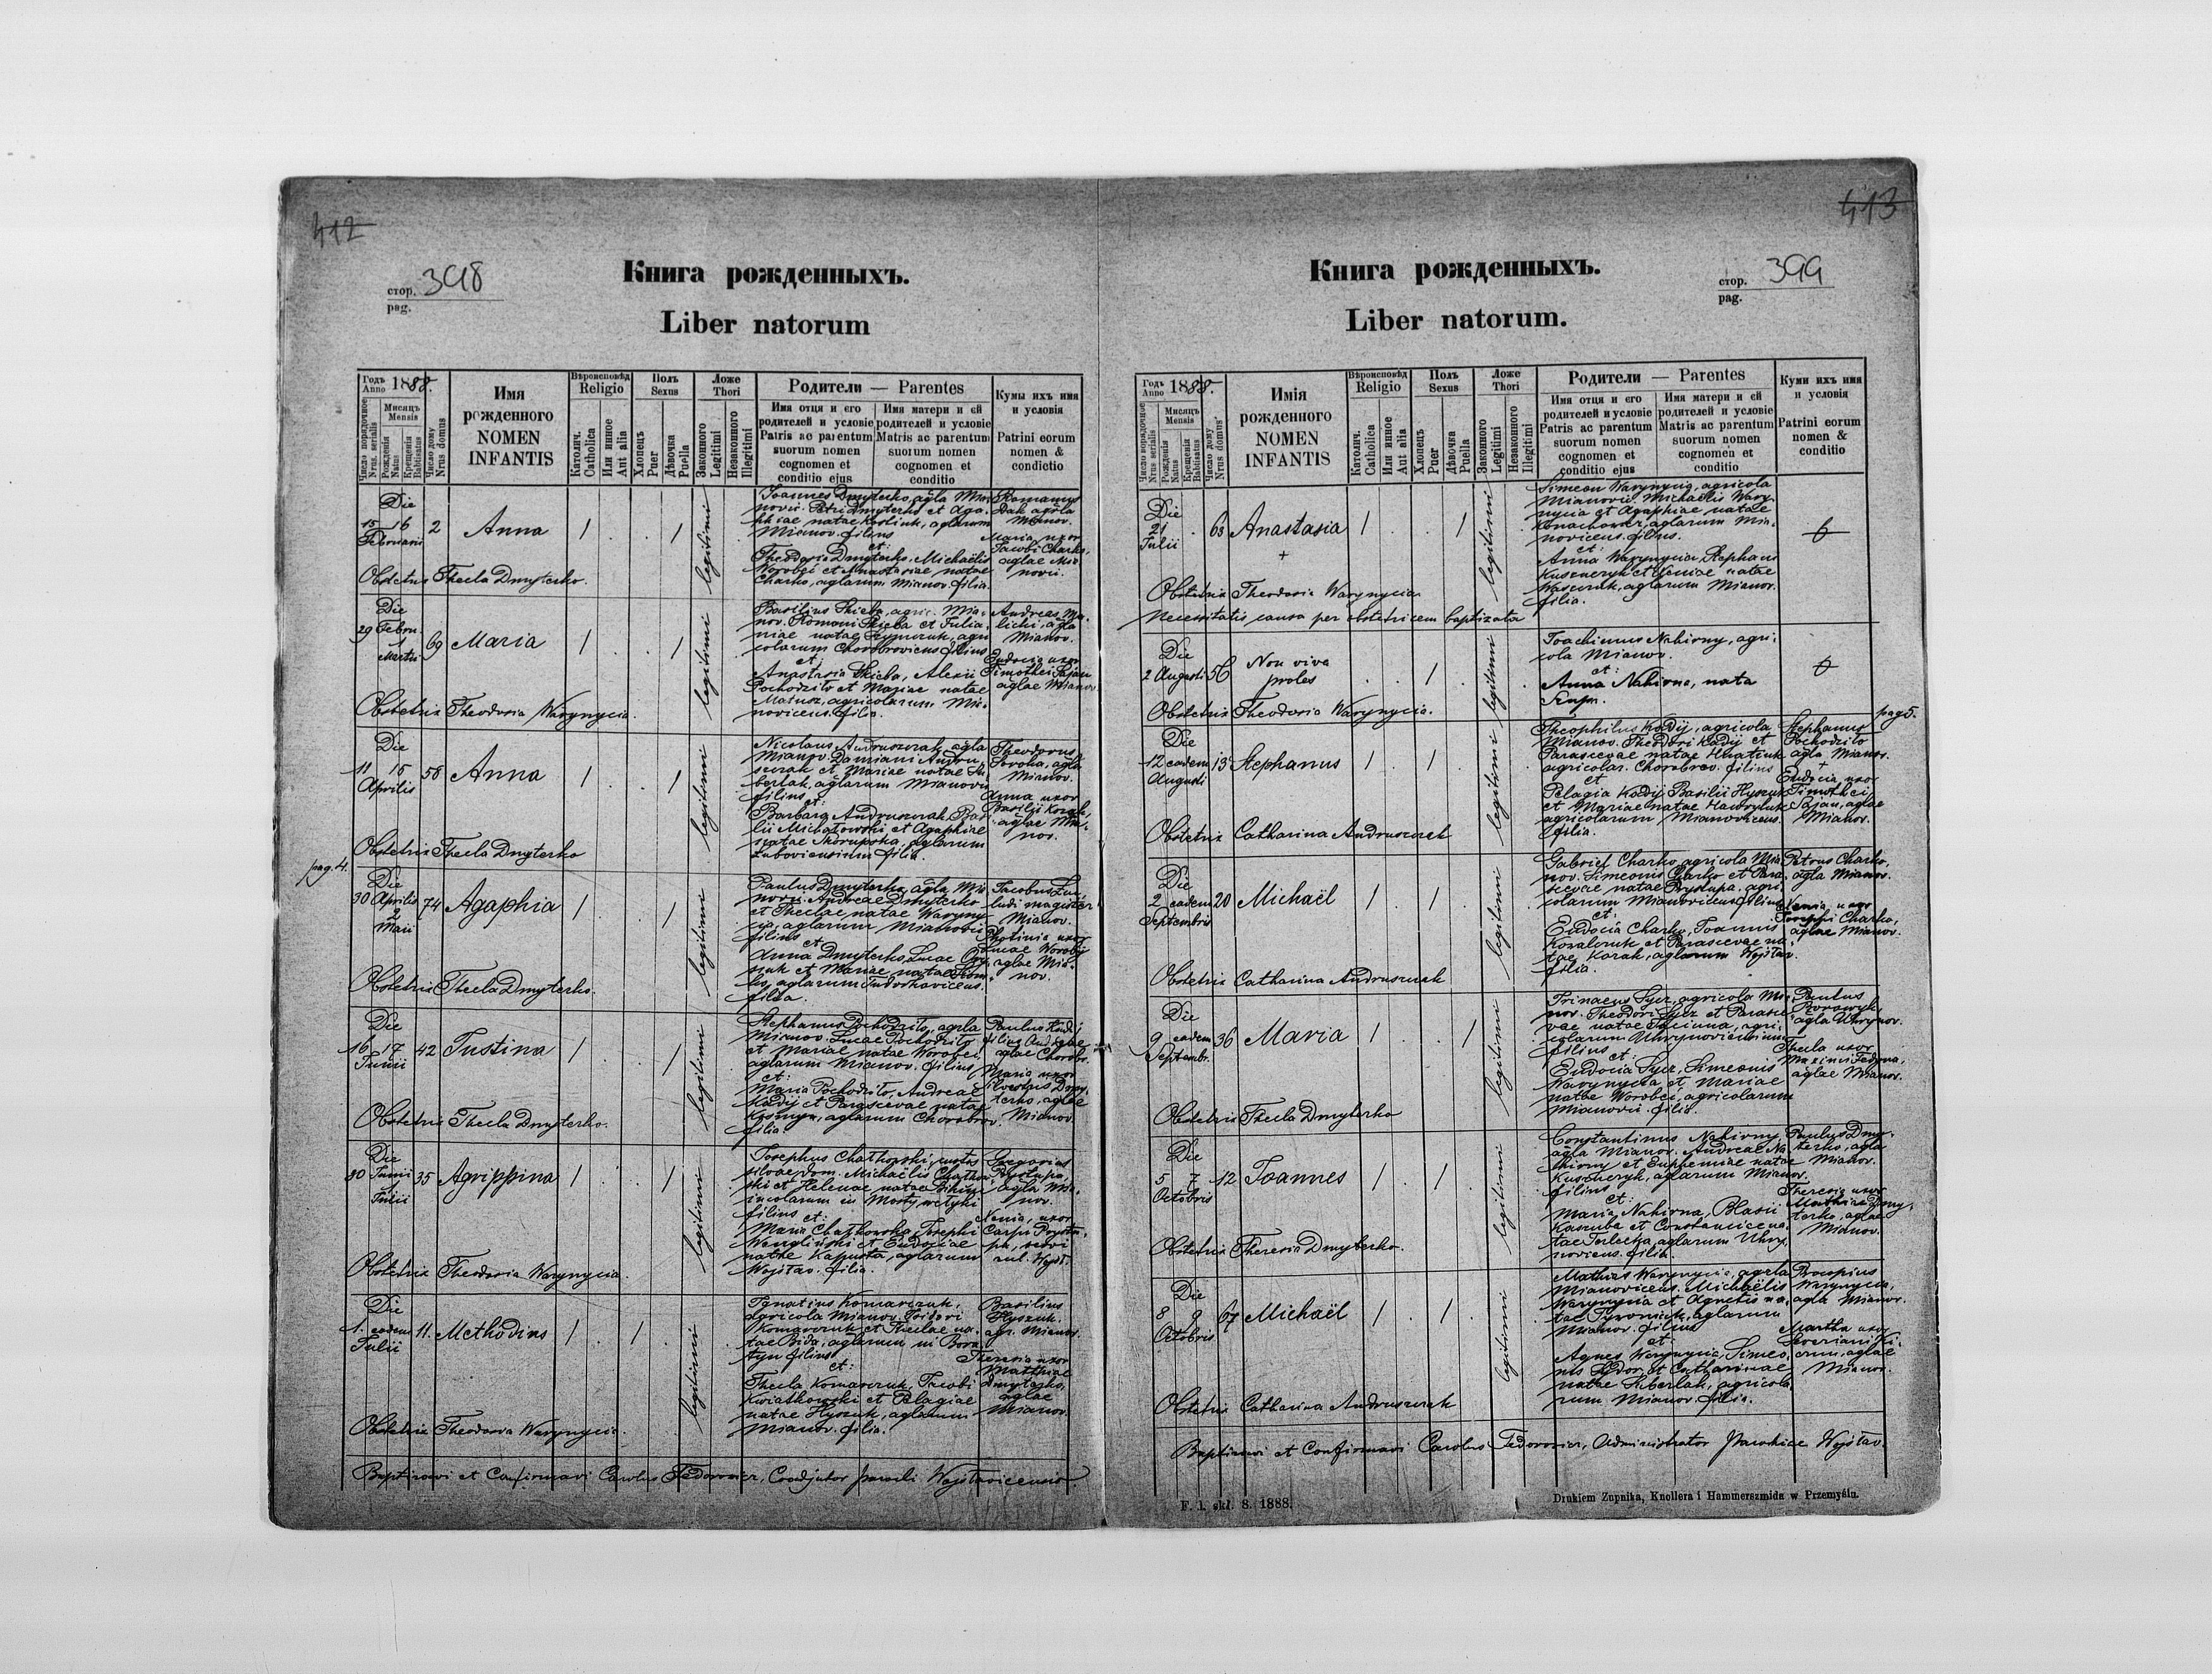 412
стор. 398
pag.
Книга рожденныхъ.
Liber natorum
Годъ Anno 1888.
Число порядочное Nrus. serialis
Мисяцъ Mensis
Рождения Natus
Крещения Babtisatus
Число дому Nrus domus
Имя рожденного
NOMEN INFANTIS
Вѣроисповѣд Religio
Католич. Catholica
Или инное Aut alia
Полъ Sexus
Хлопецъ Puer
Дѣвочка Puella
Ложе Thori
Законного Legitimi
Незаконного Illegitimi
Родители — Parentes
Имя отця и его родителей и условіе
Patris ac parentum suorum nomen cognomen et conditio ejus
Имя матери и ей родителей и условіе
Matris ac parentum suorum nomen cognomen et conditio
Кумы ихъ имя и условія
Patrini eorum nomen & condictio
Die
15 16 2 Anna 1 . . 1 legitimi
Februarii
Joannes Dmyterko, agla Mia-
novii. Petri Dmyterko et Aga-
phiae natae
Mianov. filius
et:
Theodosia Dmyterko, Michaëlis
Worobei et Anastasiae natae
Charko, aglarum Mianov. filia.
Romanus
agla
Mianov.
Maria uxor
Jacobi Charko,
aglae Mia-
novii.
Obstetrix Thecla Dmyterko.
Die
29 Febru.
1 Martii 69 Maria 1 . . 1 legitimi
Basilius Skiba, agric. Mia-
nov. Romani Skiba et Julia-
niae natae
colarum Chorobroviens. filius
et:
Anastasia Skiba, Alexii
Pochodzilo et Mariae natae
agricolarum Mia-
novicens. filia.
Andreas
agla
Mianov.
Eudocia uxor
Timothei Pajan
aglae Mianov.
Obstetrix Theodosia Warynycia.
Die
11 15 58 Anna 1 . . 1 legitimi
Aprilis
Nicolaus Andruszczak, agla
Mianov. Damiani Andru-
szczak et Mariae natae Si-
berlak, aglarum Mianovii
filius
et:
Barbara Andruszczak, Basi-
lii Michałowski et Agaphiae
natae Skorupska, aglarum
filia.
Theodorus
agla
Mianov.
Anna uxor
Basilii
aglae Mia-
nov.
Obstetrix Thecla Dmyterko
pag. 4.
Die
30 Aprilis
2 Maii 74 Agaphia 1 . . 1 legitimi
Paulus Dmyterko, agla Mia-
novii. Andreae Dmyterko
et Theclae, natae Waryny-
cia, aglarum Mianovii
filius
et
Anna Dmyterko, Lucae
et Mariae natae
aglarum
filia.
Jacobus
ludi magister
Mianov.
Photinia uxor
Lucae Worobij
aglae Mia-
nov.
Obstetrix Thecla Dmyterko.
Die
16 17 42 Justina 1 . . 1 legitimi
Junii
Stephanus Pochodzilo, agla
Mianov. Lucae Pochodzilo
et Mariae natae Worobei,
aglarum Mianov. filius
et:
Maria Pochodzilo, Andreae
Kadij et Parascevae natae
aglarum Chorobrov.
filia.
Paulus
filius Andreae
aglae Chorobr.
Maria uxor
Silvestris Dmy-
terko, aglae
Mianov.
Obstetrix Thecla Dmyterko.
Die
30 Junii
Julii 35 Agrippina 1 . . 1 legitimi
Josephus Chatkowski, custos
silvae dom. Michaëlis Chatkow-
ski et Helenae natae
incolarum in Mosty wielyki
filius
et:
Maria Chatkowska, Josephi
et Eudociae
natae Kapusta, aglarum
Wojslav. filia.
Gregorius
Prystupa,
agla Mia-
nov.
Xenia, uxor
Carpi Prystu-
pa, servi
aul. Wojsl.
Obstetrix Theodosia Warynycia.
Die
1. eadem 11. Methodius 1 . 1 . legitimi
Julii
Ignatius Komarczuk,
agricola Mianov. Isidori
Komarczuk et Theclae na-
tae Bida, aglarum in Bora-
tyn filius
et:
Thecla Komarczuk, Jacobi
Kwiatkowski et Pelagiae
natae Hyszuk, aglarum
Mianov. filia.
Basilius
Hyszuk.
agr. Mianov.
Theresia uxor
Matthiae
Dmyterko,
aglae
Mianov.
Obstetrix Theodosia Warynycia
Baptizavi et Confirmavi Carolus Fedorowicz, Coadjutor paroch. Wojslavicensis.
413
стор. 399
pag.
Книга рожденныхъ.
Liber natorum.
Годъ Anno 1888.
Число порядочное Nrus serialis
Мисяцъ Mensis
Рождения Natus
Крещения Babtisatus
Число дому Nrus domus
Имія рожденного
NOMEN INFANTIS
Вѣроисповѣд Religio
Католич. Catholica
Или инное Aut alia
Полъ Sexus
Хлопецъ Puer
Дѣвочка Puella
Ложе Thori
Законного Legitimi
Незаконного Illegitimi
Родители — Parentes
Имя отця и его родителей и условіе
Patris ac parentum suorum nomen cognomen et conditio ejus
Имя матери и ей родителей и условіе
Matris ac parentum suorum nomen cognomen et conditio
Куми ихъ имя и условія
Patrini eorum nomen & conditio
Die
21 . 63 Anastasia 1 . . 1 legitimi
Julii +
Simeon Warynycia, agricola
Mianovii, Michaëlis Wary-
nycia et Agaphiae natae
aglarum Mia-
novicens. filius.
et:
Anna Warynycia, Stephani
Kuszneryk et Xeniae natae
aglarum Mianov.
filia.
Obstetrix Theodosia Warynycia
Necessitatis causa per obstetricem baptizata
Die
2 Augusti 56 Non viva
proles . . 1 . legitimi
Joachimus Nahirny, agri-
cola Mianov.
et:
Anna Nahirna, nata
Obstetrix Theodosia Warynycia.
pag 5.
Die
12 eadem 13 Stephanus 1 . 1 . legitimi
Augusti
Theophilus Kadij, agricola
Mianov. Theodori Kadij et
Parascevae natae Hnatiuk
agricolar. Chorobrov. filius
et
Pelagia Kadij Basilii Hyszuk
et Mariae natae Hawryluk
agricolarum Mianoviicens.
filia.
Stephanus
Pochodzilo
agla Mianov.
+
Eudocia, uxor
Timothei
Pajan, aglae
Mianov.
Obstetrix Catharina Andruszczak
Die
2 eadem 20 Michaël 1 . 1 . legitimi
Septembris
Gabriel Charko, agricola Mia-
nov. Simeonis Charko et Para-
scevae natae Prystupa, agri-
colarum Mianovicens. filius
et:
Eudocia Charko, Joannis
Kowalczuk et Parascevae na-
tae Korak, aglarum Wojslav.
filia.
Petrus Charko,
agla Mianov.
Xenia, uxor
Josephi Charko,
aglae Mianov.
Obstetrix Catharina Andruszczak
Die
9 eadem 36 Maria 1 . . 1 legitimi
Septembr.
Irinaeus Sycz, agricola Mia-
nov. Theodori Sycz et Parasce-
vae natae agri-
colarum Uhrynoviensium
filius
et:
Eudocia Sycz, Simeonis
Warynycia et Mariae
natae Worobei, agricolarum
Mianovii. filia.
Paulus
agla Uhrynov.
Thecla uxor
Maximi Fedyna,
aglae Mianov.
Obstetrix Thecla Dmyterko
Die
5 7 12 Joannes 1 . 1 . legitimi
Octobris
Constantinus Nahirny,
agla Mianov. Andreae Na-
hirny et Euphemiae natae
Kuszneryk, aglarum Mianov.
filius
et:
Maria Nahirna, Blasii
Kaszuba et Constanciae na-
tae Terlecka, aglarum Uhry-
noviens. filia.
Paulus Dmy-
terko, agla
Mianov.
Theresia uxor
Matthiae Dmy-
terko, aglae
Mianov.
Obstetrix Theresia Dmyterko.
Die
8 9 67 Michaël 1 . 1 . legitimi
Octobris
Mathias Warynycia, agrla
Mianovicens. Michaëlis
Warynycia et Agnetis na-
tae aglarum
Mianov. filius
et
Agnes Warynycia, Simeo-
nis Sydor et Catharinae
natae Siberlak, agricola-
rum Mianov. filia.
Procopius
Warynycia,
agla Mianov.
Martha uxor
Severiani
aglae
Mianov.
Obstetrix Catharina Andruszczak
Baptizavi et Confirmavi Carolus Fedorowicz, Administrator Parochiae Wojslav.
F. 1. skł. 8. 1888.
Drukiem Żupnika, Knollera i Hammerszmida w Przemyślu.